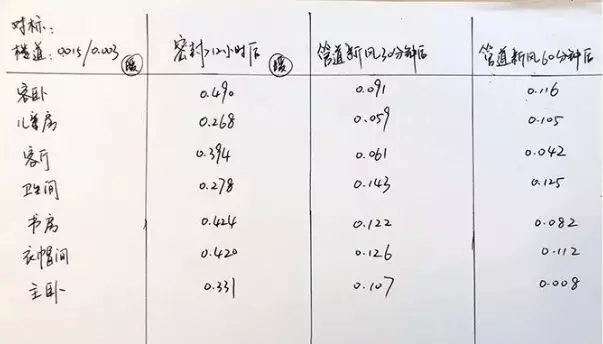 对标：
楼道：0.015/0.003 暖 密封>12小时后 暖 管道新风30分钟后 管道新风60分钟后
客卧 0.490 0.091 0.116
儿童房 0.268 0.059 0.105
客厅 0.394 0.061 0.042
卫生间 0.278 0.143 0.125
书房 0.424 0.122 0.082
衣帽间 0.420 0.126 0.112
主卧 0.331 0.107 0.008